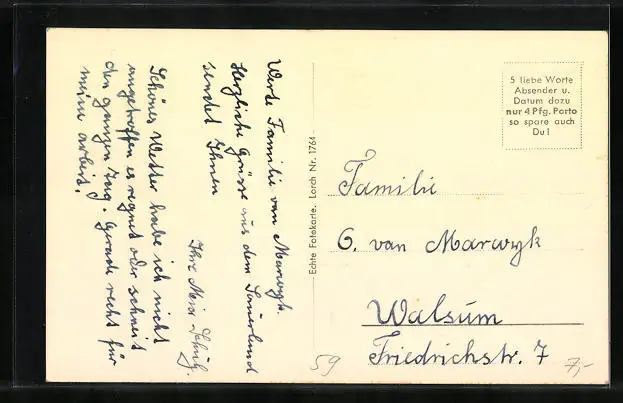 Werte Familie van Marwyk.
Herzliche Grüsse aus dem Sauerland
sendet Ihnen
Ihre
Schönes Wetter habe ich nicht
angetroffen es regnet oder schneit
den ganzen Tag. Gerade recht für
meine arbeit.
Echte Fotokarte. Lorch Nr. 1764
5 liebe Worte
Absender u.
Datum dazu
nur 4 Pfg. Porto
so spare auch
Du!
Familie
G. van Marwyk
Walsum
Friedrichstr. 7
59
7,-